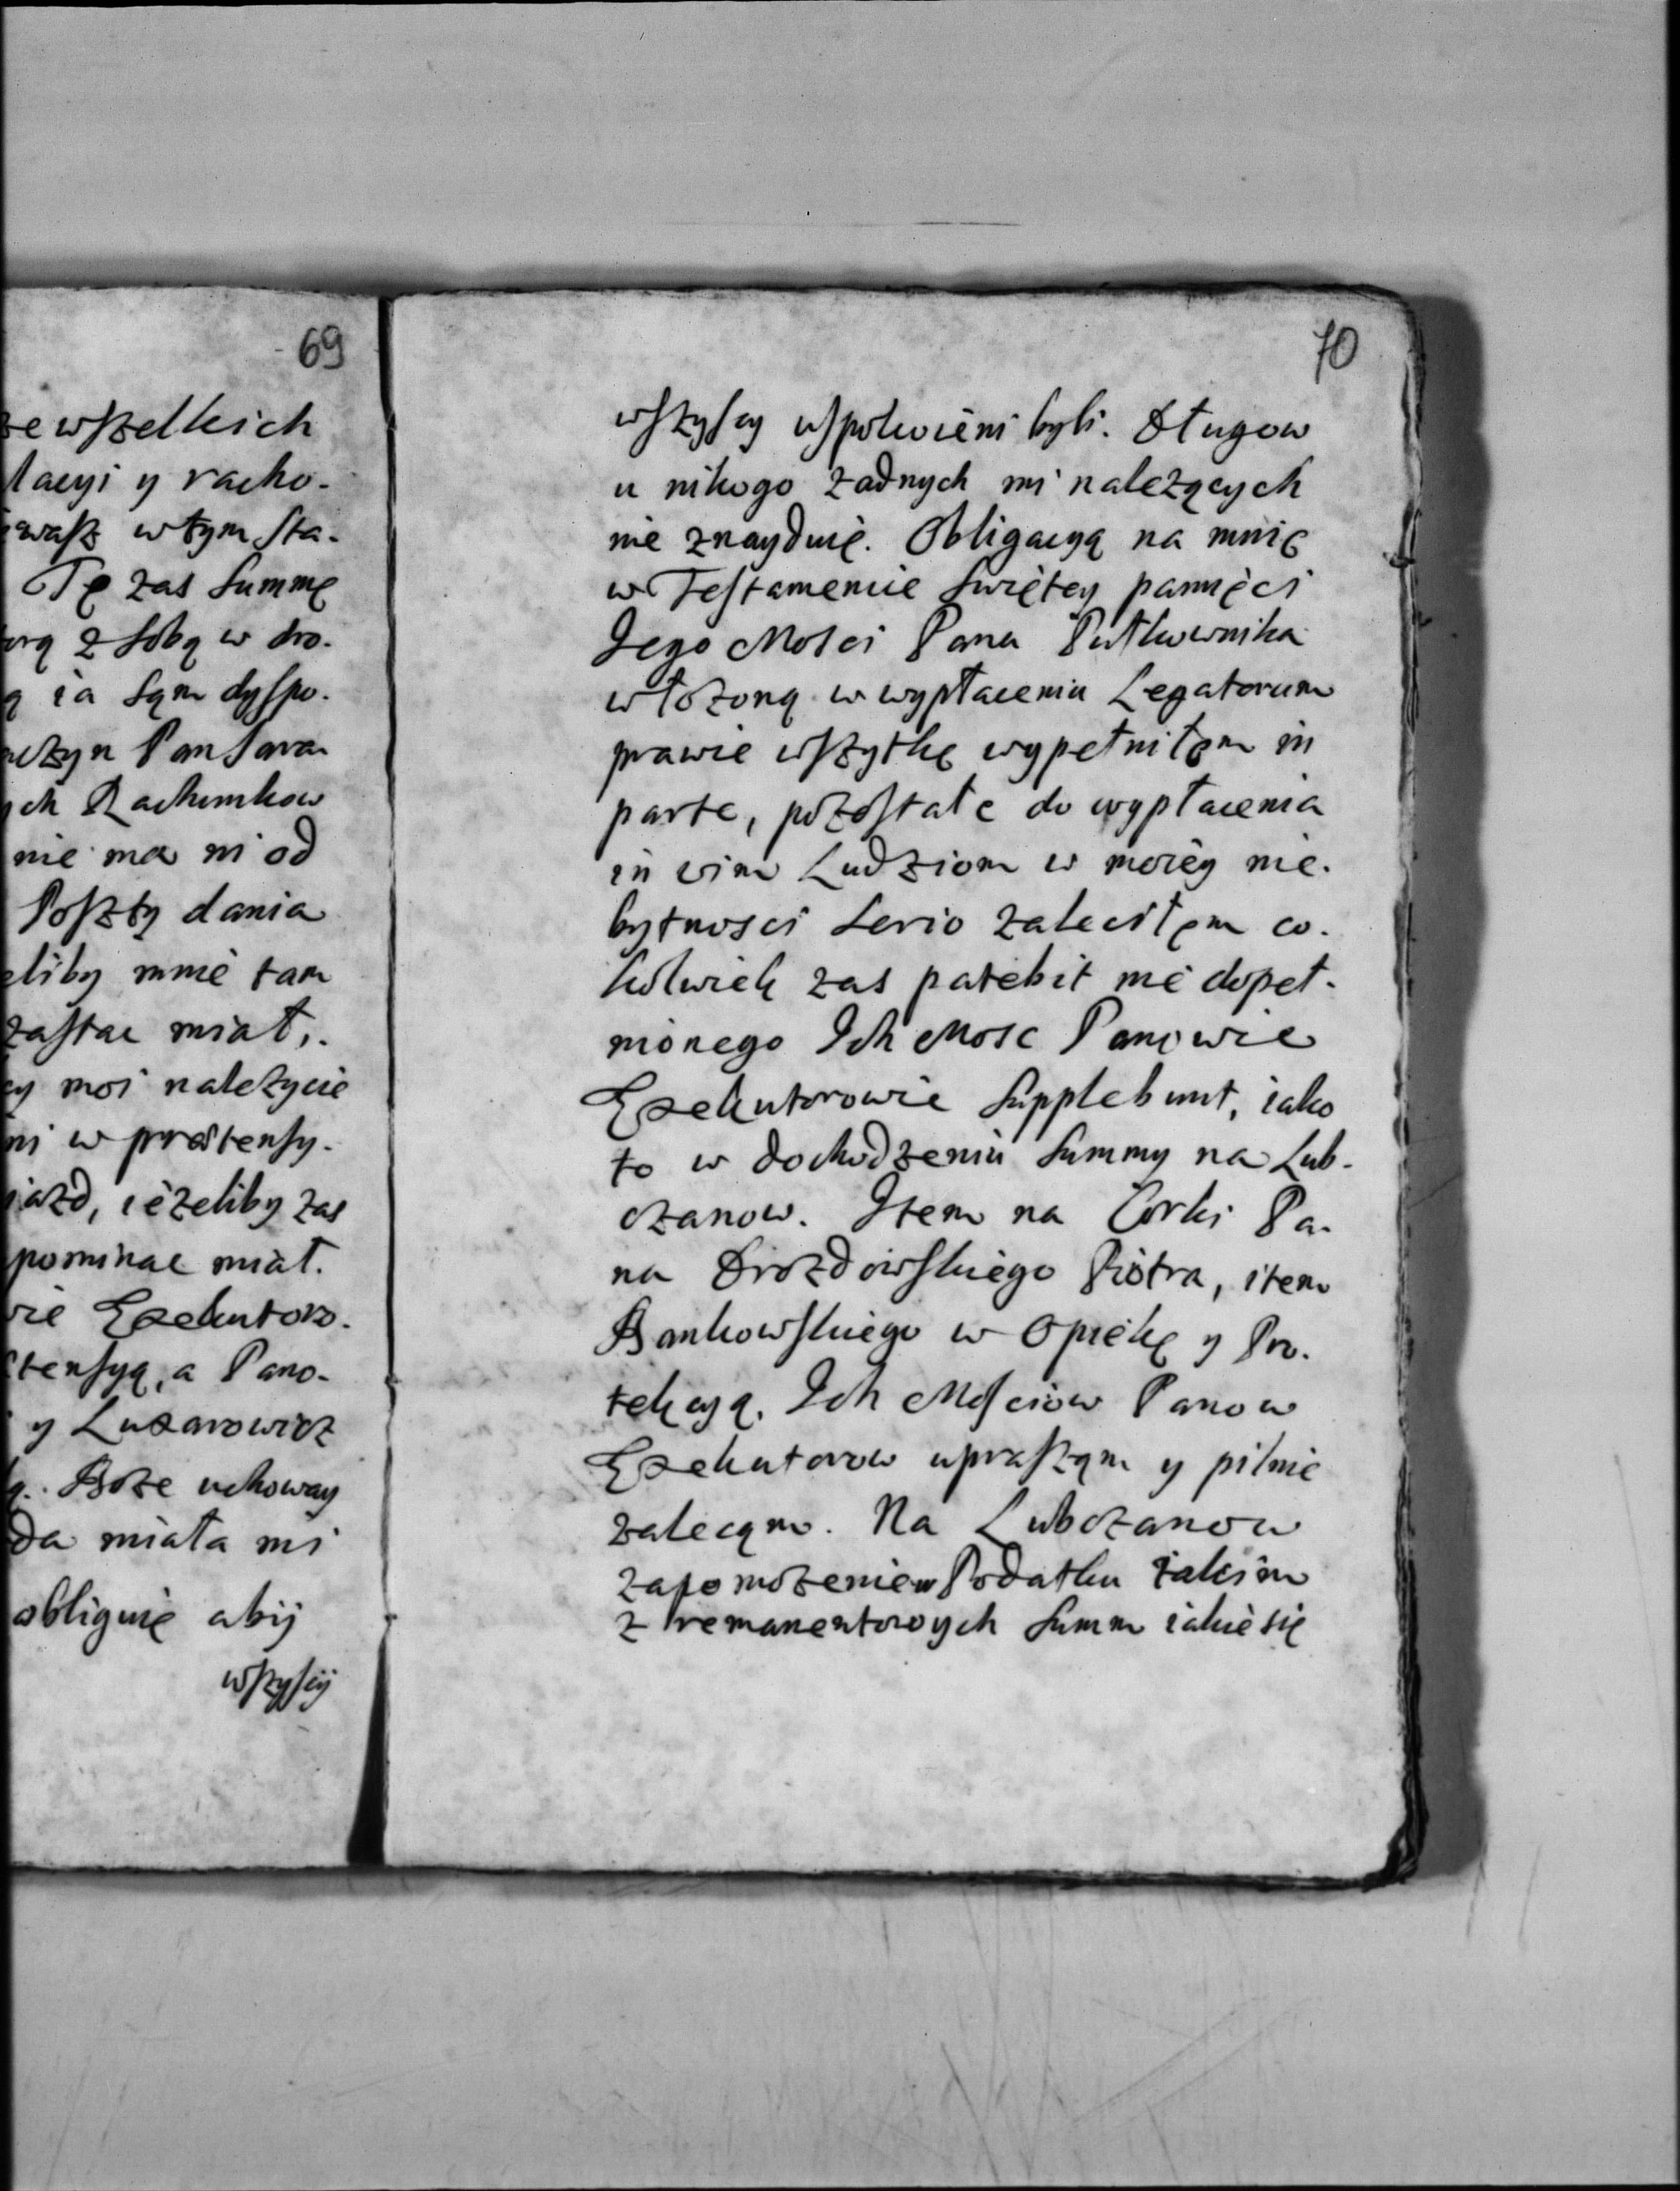 69
ze wszelkich
lacyi y racho-
wasz w tym sta-
Tę zas Summę
orą z sobą w dro-
ą ia sąm dyspo-
Pan Sawa
ych Rachunkow
nie ma ni od
Poszty dania
eliby mnie tam
zastac miał,
cy moi nalezycie
ni w prætensy-
iazd, iezeliby zas
pominac miał.
wie Exekutoro-
tensyą, a Pano-
y Luzarowicz
Boze uchoway
da miała mi
obliguię abÿ
wszyscÿ
70
wszyscy uspokoieni byli. Długow
u nikogo zadnych mi nalezących
nie znayduię. Obligacyą na mnię
w Testamencie Swiętey pamięci
Jego Mosci Pana Pułkownika
włozoną w wypłaceniu Legatorum
prawie wszytkę wypełniłęm in
parte, pozostałe do wypłacenia
in vim Ludziom w moiey nie-
bytnosci serio zaleciłęm co-
kolwiek zas patebit nie dopeł-
nionego Ich Mosc Panowie
Exekutorowie supplebunt, iako
to w dochodzeniu summy na Lub-
czanow. Item na Corki Pa-
na Drozdowskiego Piotra, item
Bankowskiego w Opiekę y Pro-
tekcyą. Ich Mosciow Panow
Exekutorow uprasząm y pilnie
zalecąm. Na Lubczanow
zapomozenie w Podatku iakim
z remanentowych summ iakie się